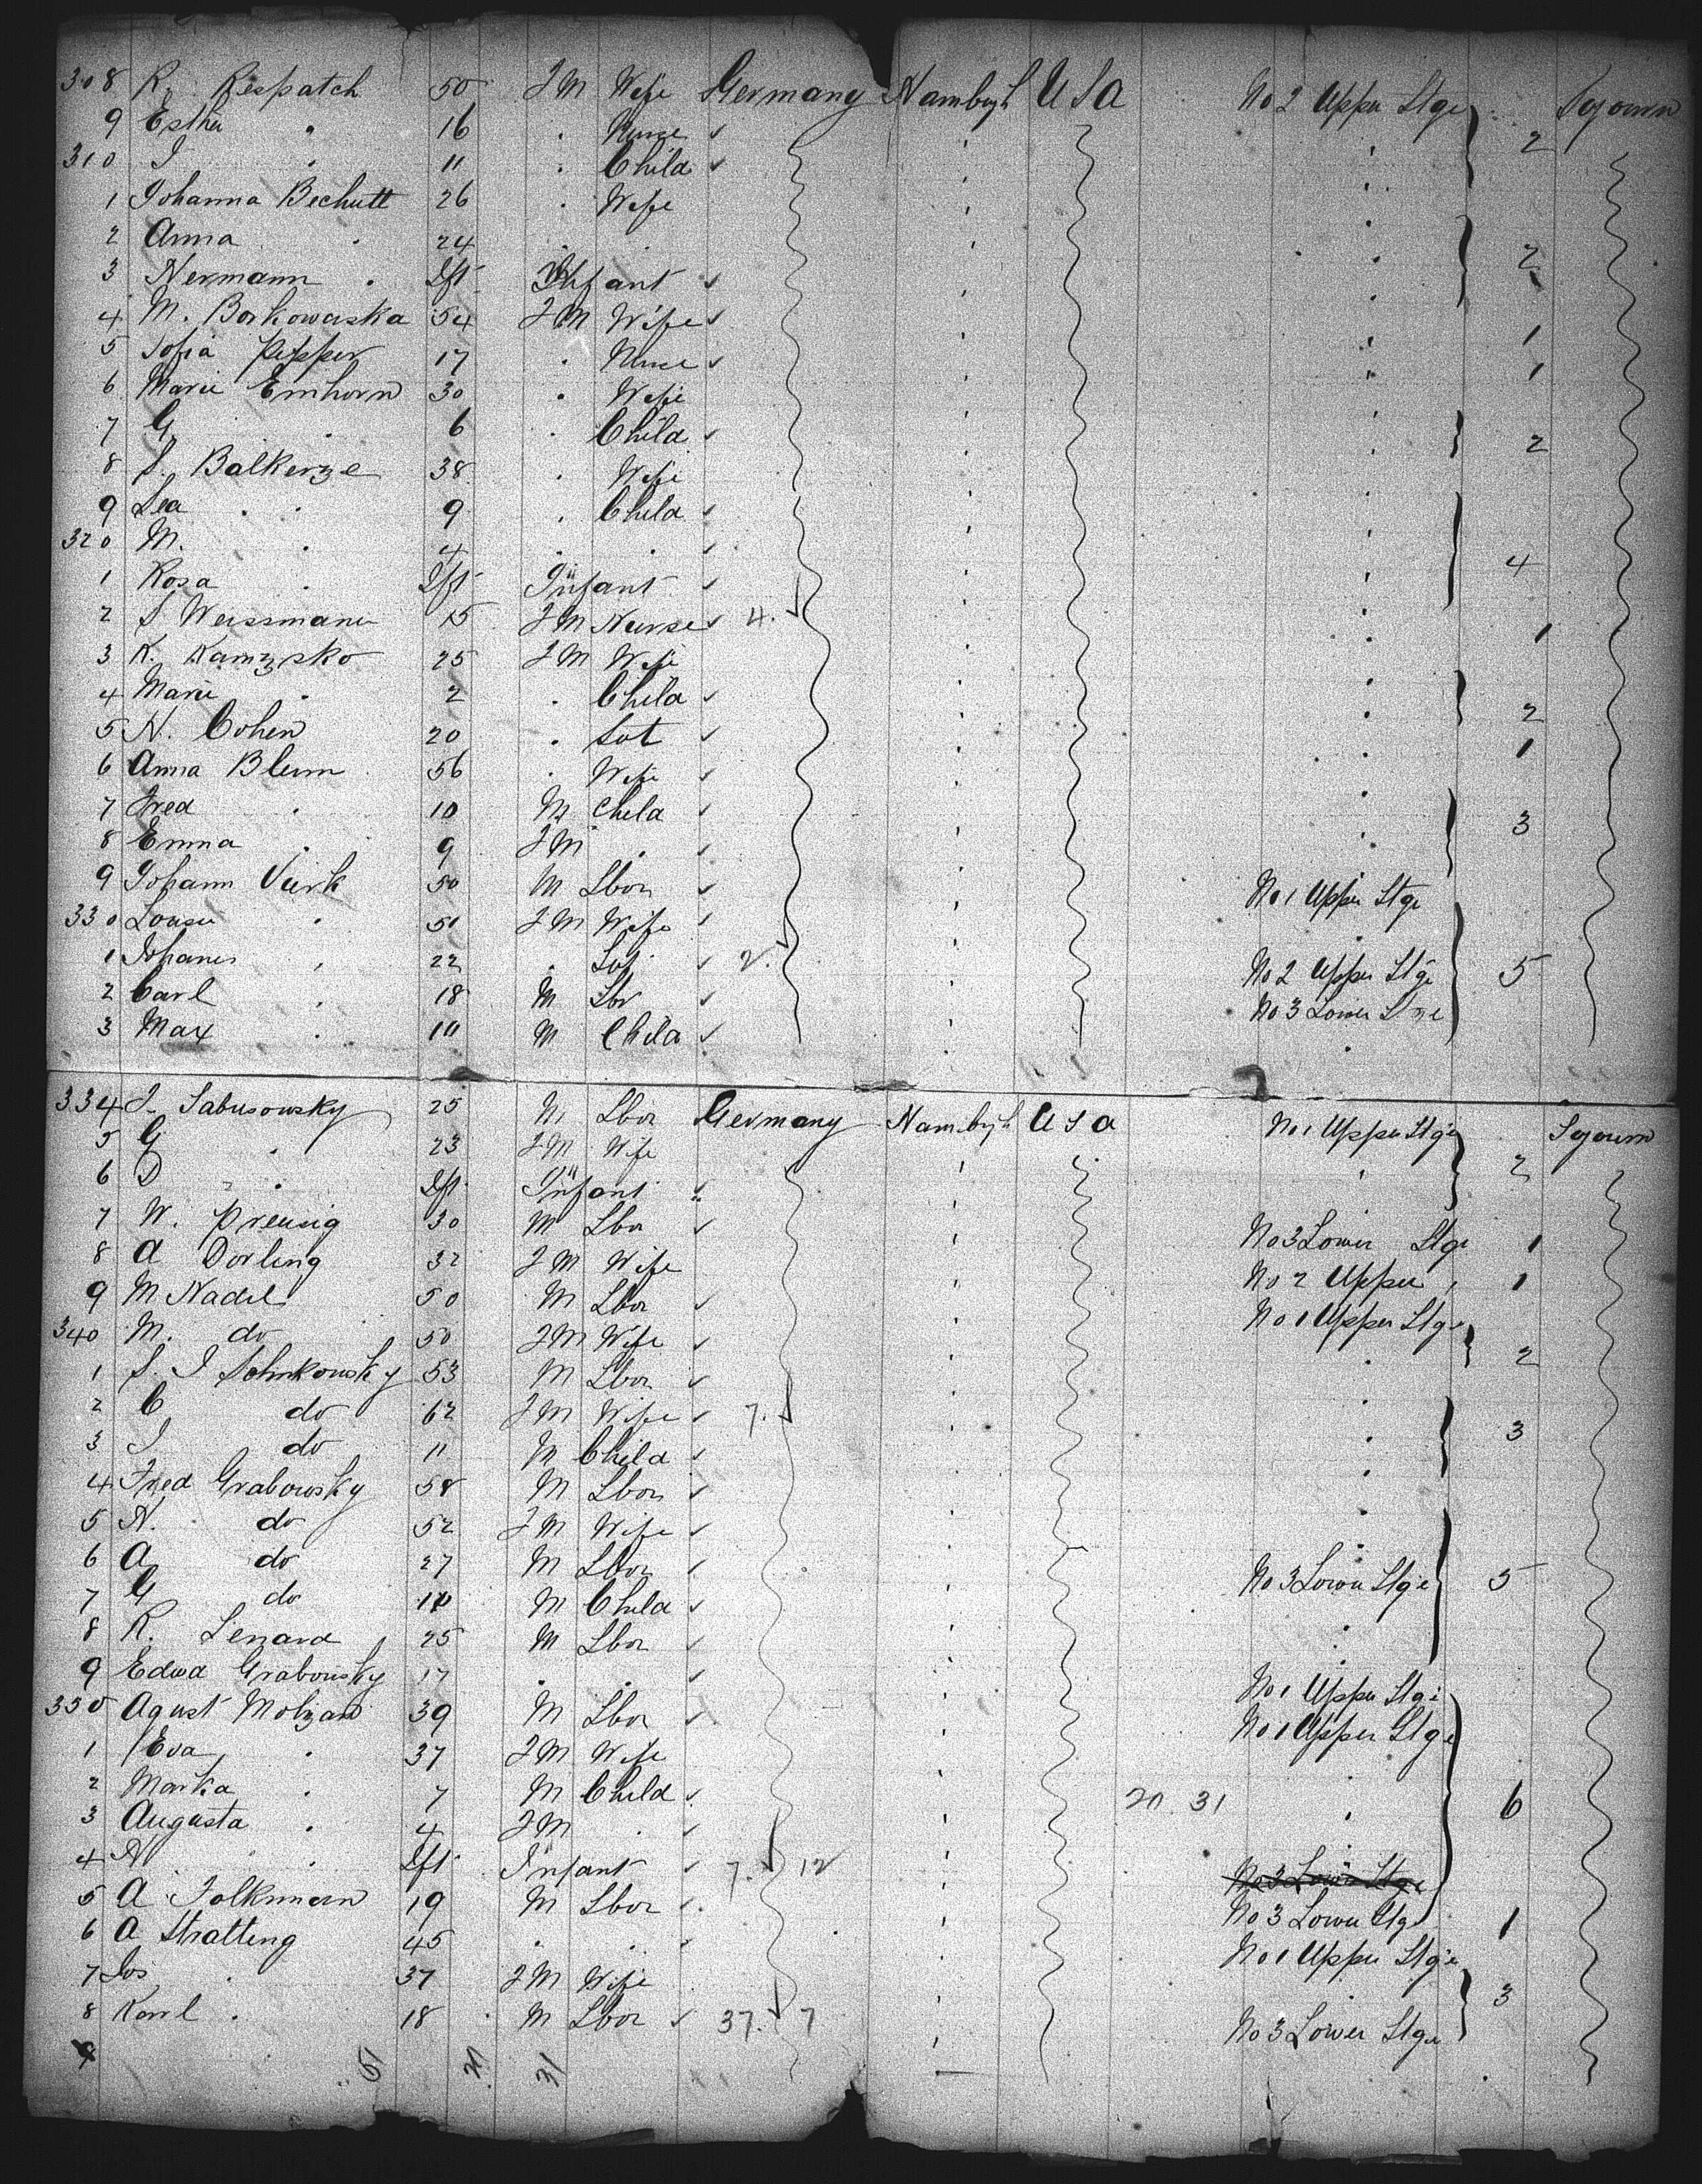 308 R. Respatch 50 F M Wife Germany Hambugh U S A No 2 Upper Stge Sojourn
9 Esther " 16 " Nurse " 2
310 J " 11 " Child "
1 Johanna Bechutt 26 " Wife "
2 Anna " 24 " " " 2
3 Hermann " Ift Infant "
4 M. Borkowska 54 F M Wife " 1
5 Sofia Pepper 17 " Nurse " 1
6 Marie Emhorn 30 " Wife "
7 G " 6 " Child " 2
8 S. Balkerze 38 " Wife "
9 Lea " " 9 " Child "
320 M. " 4 " " " 4
1 Rosa " Ift Infant "
2 S Weissmann 15 F M Nurse 4. " 1
3 K. Kamzsko 25 F M Wife "
4 Marie " 2 " Child " 2
5 N. Cohen 20 " " 1
6 Anna Blum 56 " Wife "
7 Fred " 10 M Child " 3
8 Emma " 9 F M " "
9 Johann Vierk 50 M Lbor No 1 Upper Stge
330 Louse " 51 F M Wife "
1 Johanes " 22 " 2. No 2 Upper Stge 5
2 Carl " 18 M Lbr No 3 Lower Stge
3 Max " 10 M Child "
334 J. Sabusowsky 25 M Lbor Germany Hambugh U S A No 1 Upper Stge Sojourn
5 G " 23 F M Wife " 2
6 D " Ift Infant "
7 W. Preusig 30 M Lbor No 3 Lower Stge 1
8 A Dorling 32 F M Wife No 2 Upper " 1
9 M Nadel 50 M Lbor No 1 Upper Stge
340 M. do 50 F M Wife " 2
1 S. J Schnkowsky 53 M Lbor "
2 C do 62 F M Wife 7. " 3
3 J do 11 M Child "
4 Fred Grabowsky 58 M Lbor "
5 N. do 52 F M Wife "
6 A do 27 M Lbor No 3 Lower Stge 5
7 G do 10 M Child "
8 R. Lenard 25 M Lbor "
9 Edwd Grabowsky 17 " " No 1 Upper Stge
350 Agust Molzan 39 M Lbor No 1 Upper Stge
1 Eva " 37 F M Wife "
2 Marka " 7 M Child 20 31 " 6
3 Augusta " 4 F M "
4 N " Ift Infant 7. 12 No 3 Lower Stge
5 A Folkmann 19 M Lbor No 3 Lower Stge 1
6 A Stratting 45 " " No 1 Upper Stge
7 Jos " 37 F M Wife " 3
8 Karl " 18 M Lbor 37. 7 No 3 Lower Stge
9 51 20 31